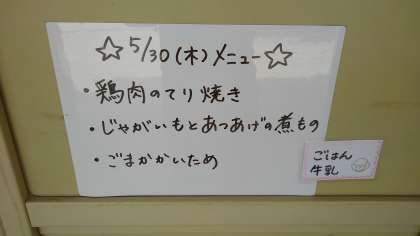 ☆5/30(木)メニュー☆
・鶏肉のてり焼き
・じゃがいもとあつあげの煮もの
・ごまかかいため
ごはん
牛乳